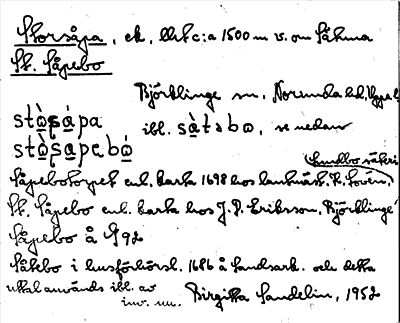 Storsåpa, ek, litet c:a 1500 m v. om Såtuna
St. Såpebo
Björklinge sn, Norunda hd, Uppl.
stò̱pá̱pa ibl. sà̱təbω, se nedan
stò̱sa̱pebό̱
Sandbro säteri
Såpebotorpet enl. karta 1698 hos lantmät. K. Lovén,
St. Såpebo enl. karta hos J. P. Eriksson, Björklinge
Såpebo å G92
Såtebo i husförhörsl. 1686 å landsark. och detta
uttal används ibl. av
inv. nu. Birgitta Sandelin, 1952